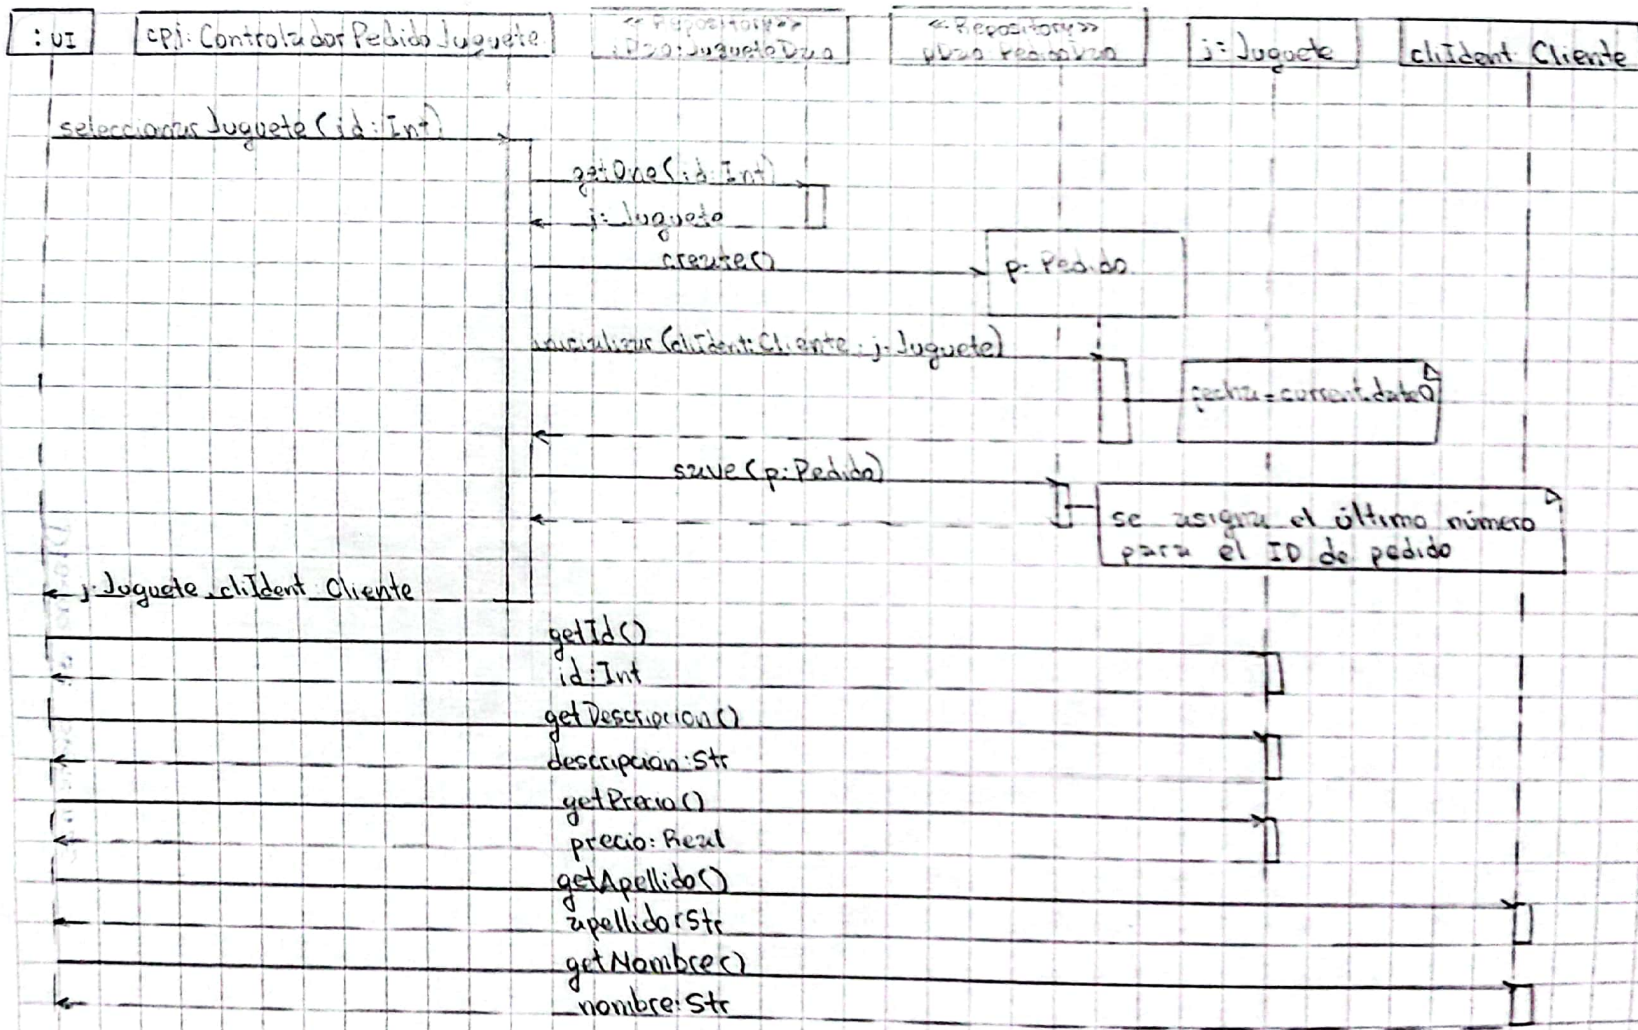 :UI
cpj: ControladorPedidoJuguete
<<Repository>>
jDao:JugueteDao
<<Repository>>
pDao PedidoDao
j: Juguete
cliIdent Cliente
seleccionar Juguete (id:Int)
getOne(id Int)
j: Juguete
create()
p: Pedido
inicializar (cliIdent:Cliente, j: Juguete)
fecha = current.date()
save(p:Pedido)
se asigna el último número
para el ID de pedido
j:Juguete, cliIdent Cliente
getId()
id:Int
getDescripcion()
descripcion:Str
getPrecio()
precio: Real
getApellido()
apellido:Str
getNombre()
nombre:Str